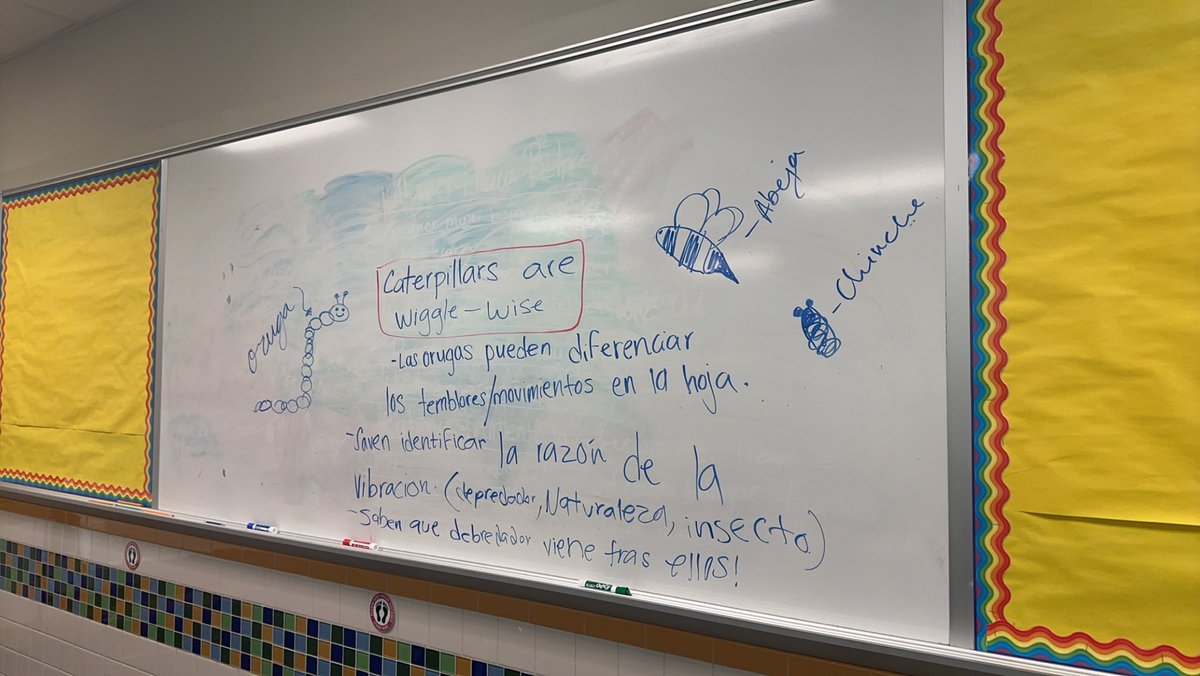 Caterpillars are
wiggle-wise
oruga
-Abeja
-Chinche
-Las orugas pueden diferenciar
los temblores/movimientos en la hoja.
-Saven identificar la razón de la
vibracion. (depredador, Naturaleza, insecto)
-Saben que debredador viene tras ellos!